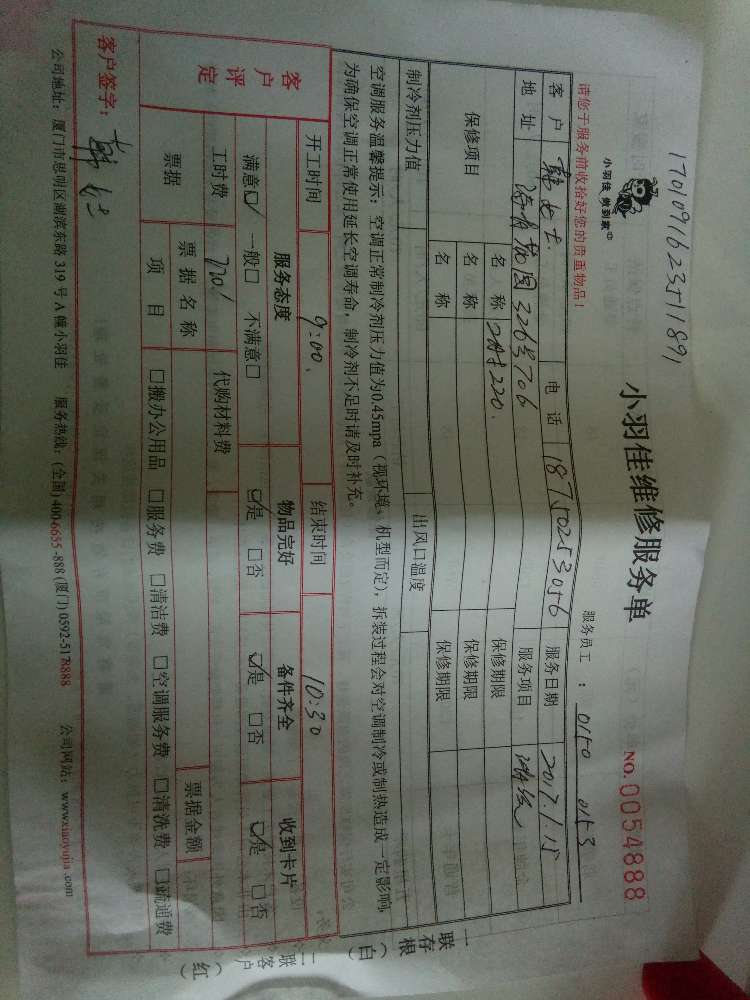 1701091623511891
小羽佳 做到家
小羽佳维修服务单
NO.0054888
请您于服务前收拾好您的贵重物品！
服务员工：0150 0153
客户 女士 电话 18750253056 服务日期 2017.1.15
地址 花园326\#706 服务项目
保修项目 名称 220. 保修期限
名称 保修期限
名称 保修期限
制冷剂压力值 出风口温度
空调服务温馨提示：空调正常制冷剂压力值为0.45mpa（视环境、机型而定），拆装过程会对空调制冷或制热造成一定影响，
为确保空调正常使用延长空调寿命，制冷剂不足时请及时补充。
开工时间 9:00. 结束时间 10:30
客户评定
服务态度 物品完好 备件齐全 收到卡片
满意☑ 一般□ 不满意□ ☑是 □否 ☑是 □否 ☑是 □否
工时费 220. 代购材料费
票据 票据名称 票据金额
项目 □搬办公用品 □服务费 □清洁费 □空调服务费 □清洗费 □疏通费
客户签字：
公司地址：厦门市思明区湖滨东路319号A幢小羽佳 服务热线：(全国)400-6655-888 (厦门)0592-5178888 公司网站：www.xiaoyujia.com
一联存根（白）
二联客户（红）